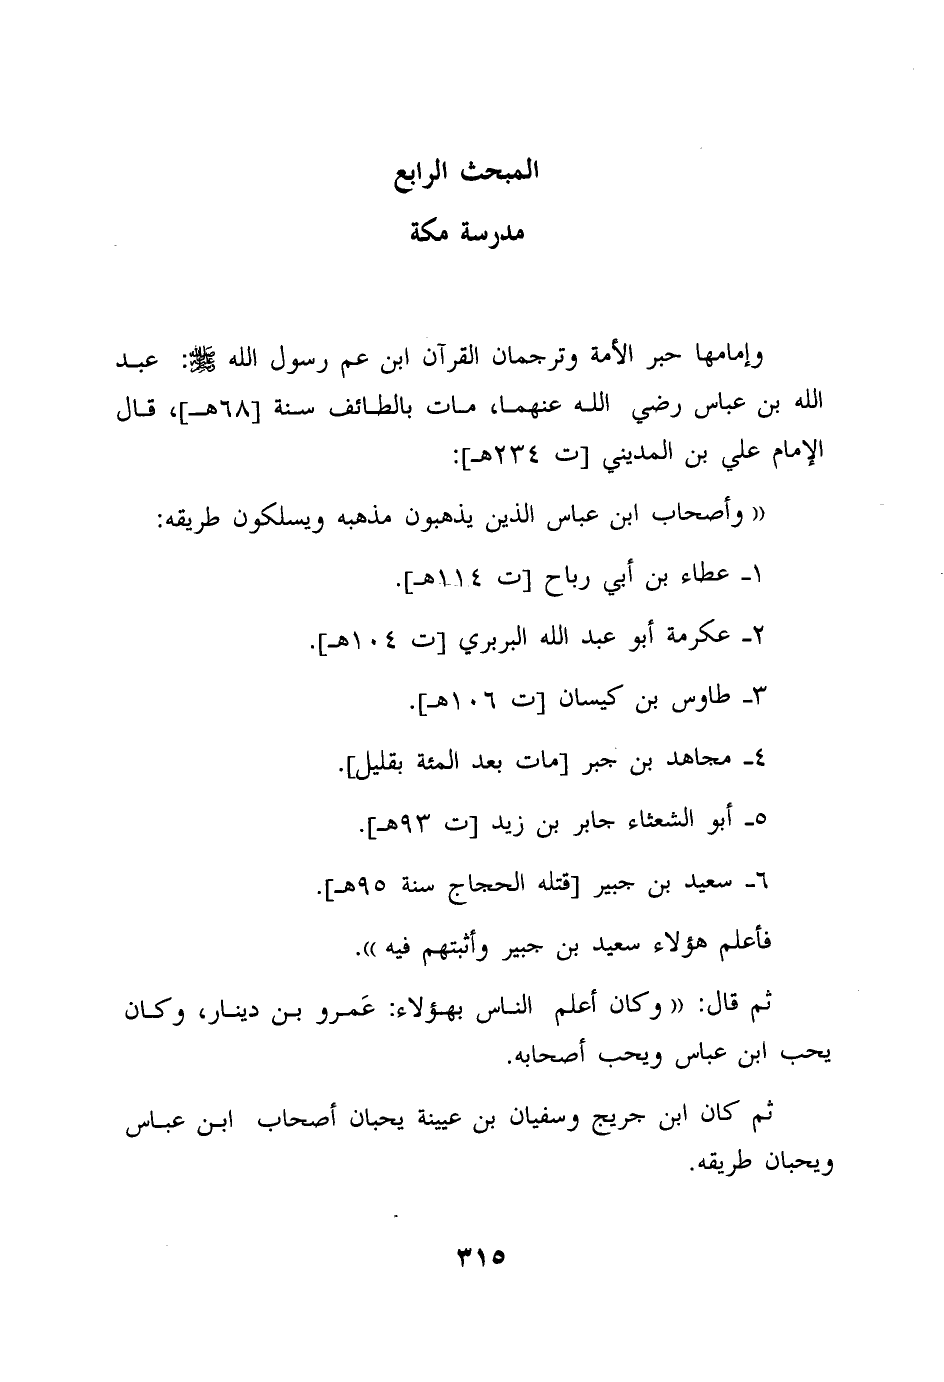 المبحث الرابع
مدرسة مكة
وإمامها حبر الأمة وترجمان القرآن ابن عم رسول الله ﷺ: عبد
الله بن عباس رضي الله عنهما، مات بالطائف سنة [٦٨هـ]، قال
الإمام علي بن المديني [ت ٢٣٤هـ]:
(( وأصحاب ابن عباس الذين يذهبون مذهبه ويسلكون طريقه:
١ـ عطاء بن أبي رباح [ت ١١٤هـ].
٢ـ عكرمة أبو عبد الله البربري [ت ١٠٤هـ].
٣ـ طاوس بن كيسان [ت ١٠٦هـ].
٤ـ مجاهد بن جبر [مات بعد المئة بقليل].
٥ـ أبو الشعثاء جابر بن زيد [ت ٩٣هـ].
٦ـ سعيد بن جبير [قتله الحجاج سنة ٩٥هـ].
فأعلم هؤلاء سعيد بن جبير وأثبتهم فيه )).
ثم قال: (( وكان أعلم الناس بهؤلاء: عَمرو بن دينار، وكان
يحب ابن عباس ويحب أصحابه.
ثم كان ابن جريج وسفيان بن عيينة يحبان أصحاب ابن عباس
ويحبان طريقه.
٣١٥